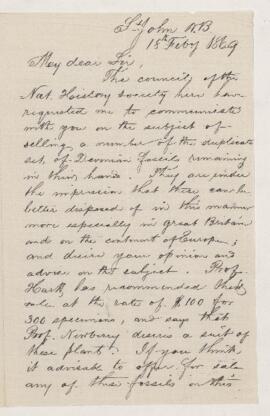 St John N.B.
18th Feby 1869
My dear Sir,
The council of the
Nat. History society here have
requested me to communicate
with you on the subject of
selling a number of the duplicate
set of Devonian fossils remaining
in their hands. They are under
the impression that these can be
better disposed of in this manner
more especially in great Britain
and on the continent of Europe;
and desire your opinion and
advise on the subject. Prof.
Hartt has recommended their
sale at the rate of $100 for
300 specimens, and says that
Prof. Newberry desires a suit of
these plants. If you think
it advisable to offer for sale
any of these fossils in this